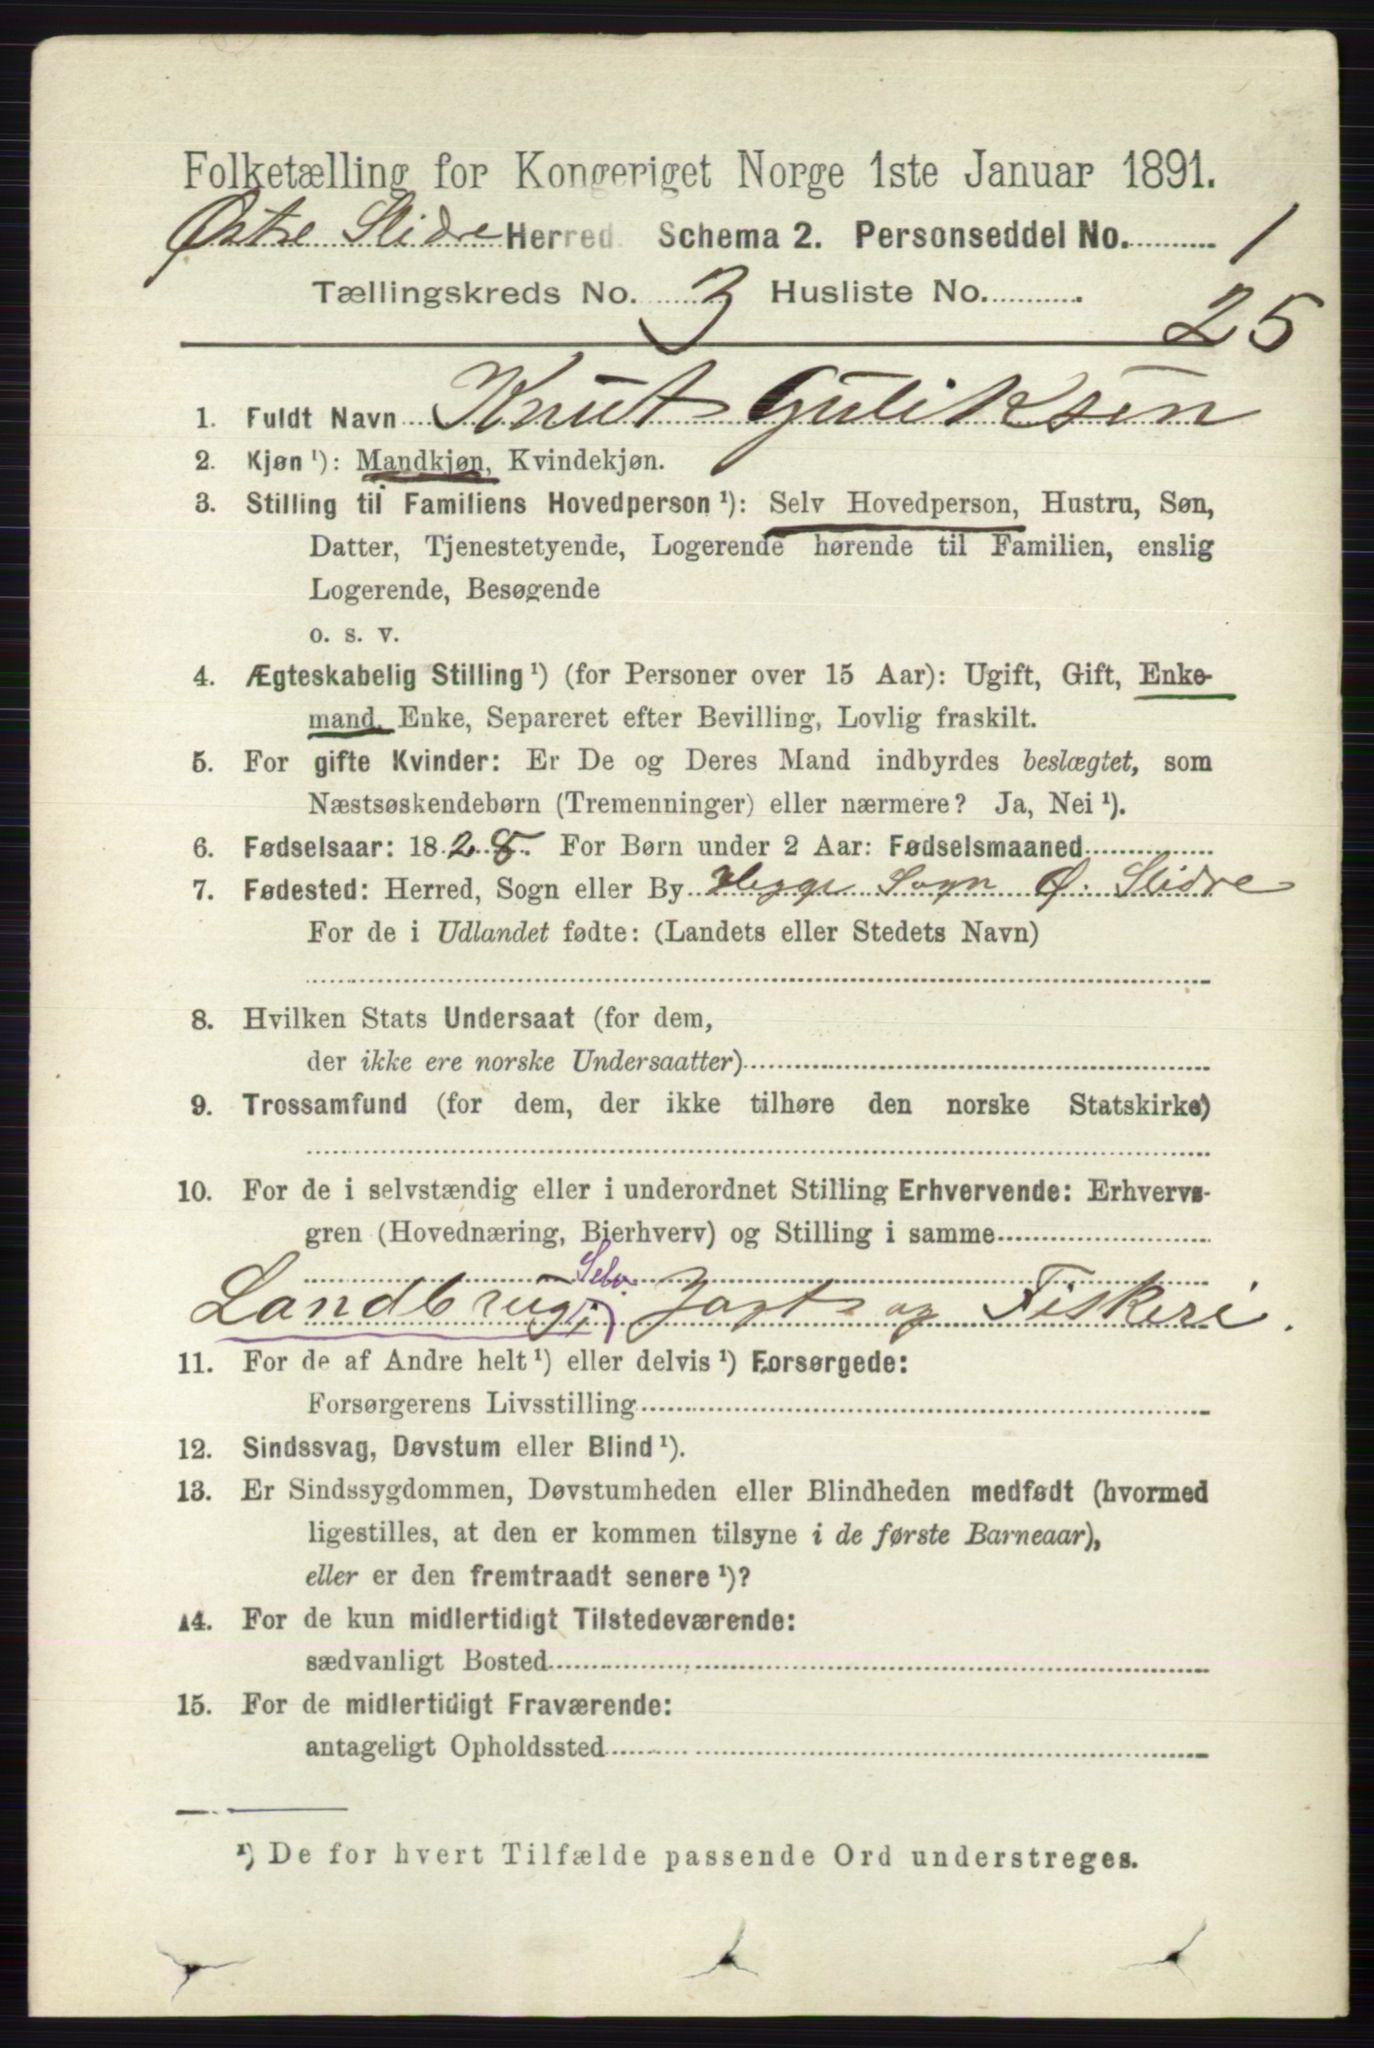 Folketælling for Kongeriget Norge 1ste Januar 1891.
Østre Slidre Herred. Schema 2. Personseddel No. 1
Tællingskreds No. 3 Husliste No. 25
1. Fuldt Navn Knut Guliksen
2. Kjøn ¹): Mandkjøn, Kvindekjøn.
3. Stilling til Familiens Hovedperson ¹): Selv Hovedperson, Hustru, Søn,
Datter, Tjenestetyende, Logerende hørende til Familien, enslig
Logerende, Besøgende
o. s. v.
4. Ægteskabelig Stilling ¹) (for Personer over 15 Aar): Ugift, Gift, Enke-
mand, Enke, Separeret efter Bevilling, Lovlig fraskilt.
5. For gifte Kvinder: Er De og Deres Mand indbyrdes beslægtet, som
Næstsøskendebørn (Tremenninger) eller nærmere? Ja, Nei ¹).
6. Fødselsaar: 1828. For Børn under 2 Aar: Fødselsmaaned
7. Fødested: Herred, Sogn eller By Hegge Sogn Ø. Slidre
For de i Udlandet fødte: (Landets eller Stedets Navn)
8. Hvilken Stats Undersaat (for dem,
der ikke ere norske Undersaatter)
9. Trossamfund (for dem, der ikke tilhøre den norske Statskirke)
10. For de i selvstændig eller i underordnet Stilling Erhvervende: Erhvervs-
gren (Hovednæring, Bierhverv) og Stilling i samme
Selv.
Landbrug; Jagt og Fiskeri.
11. For de af Andre helt ¹) eller delvis ¹) Forsørgede:
Forsørgerens Livsstilling
12. Sindssvag, Døvstum eller Blind ¹).
13. Er Sindssygdommen, Døvstumheden eller Blindheden medfødt (hvormed
ligestilles, at den er kommen tilsyne i de første Barneaar),
eller er den fremtraadt senere ¹)?
14. For de kun midlertidigt Tilstedeværende:
sædvanligt Bosted
15. For de midlertidigt Fraværende:
antageligt Opholdssted
¹) De for hvert Tilfælde passende Ord understreges.